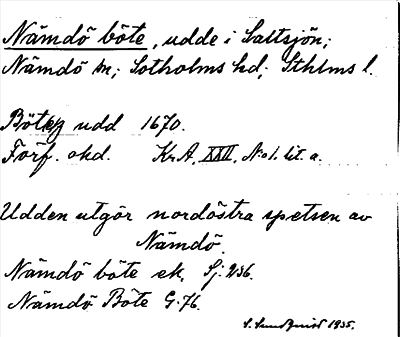 Nämdö böte, udde i Saltsjön;
Nämdö sn; Sotholms hd; Sthlms l.
Böte udd 1670.
Förf. okd. Kr.A. XXII, N:o 1. lit. a.
Udden utgör nordöstra spetsen av
Nämdö.
Nämdö böte ek. Sj. 236.
Nämdö Böte G. 76.
S. Sundqvist 1935.